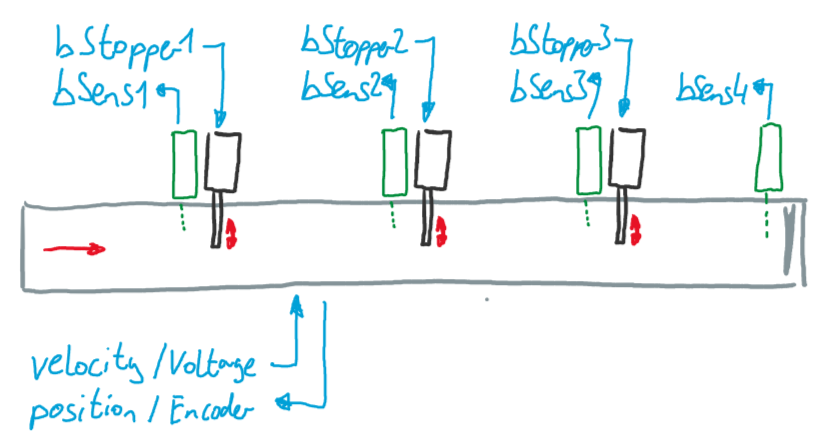 bStopper1
bSens1
bStopper2
bSens2
bStopper3
bSens3
bSens4
velocity / Voltage
position / Encoder